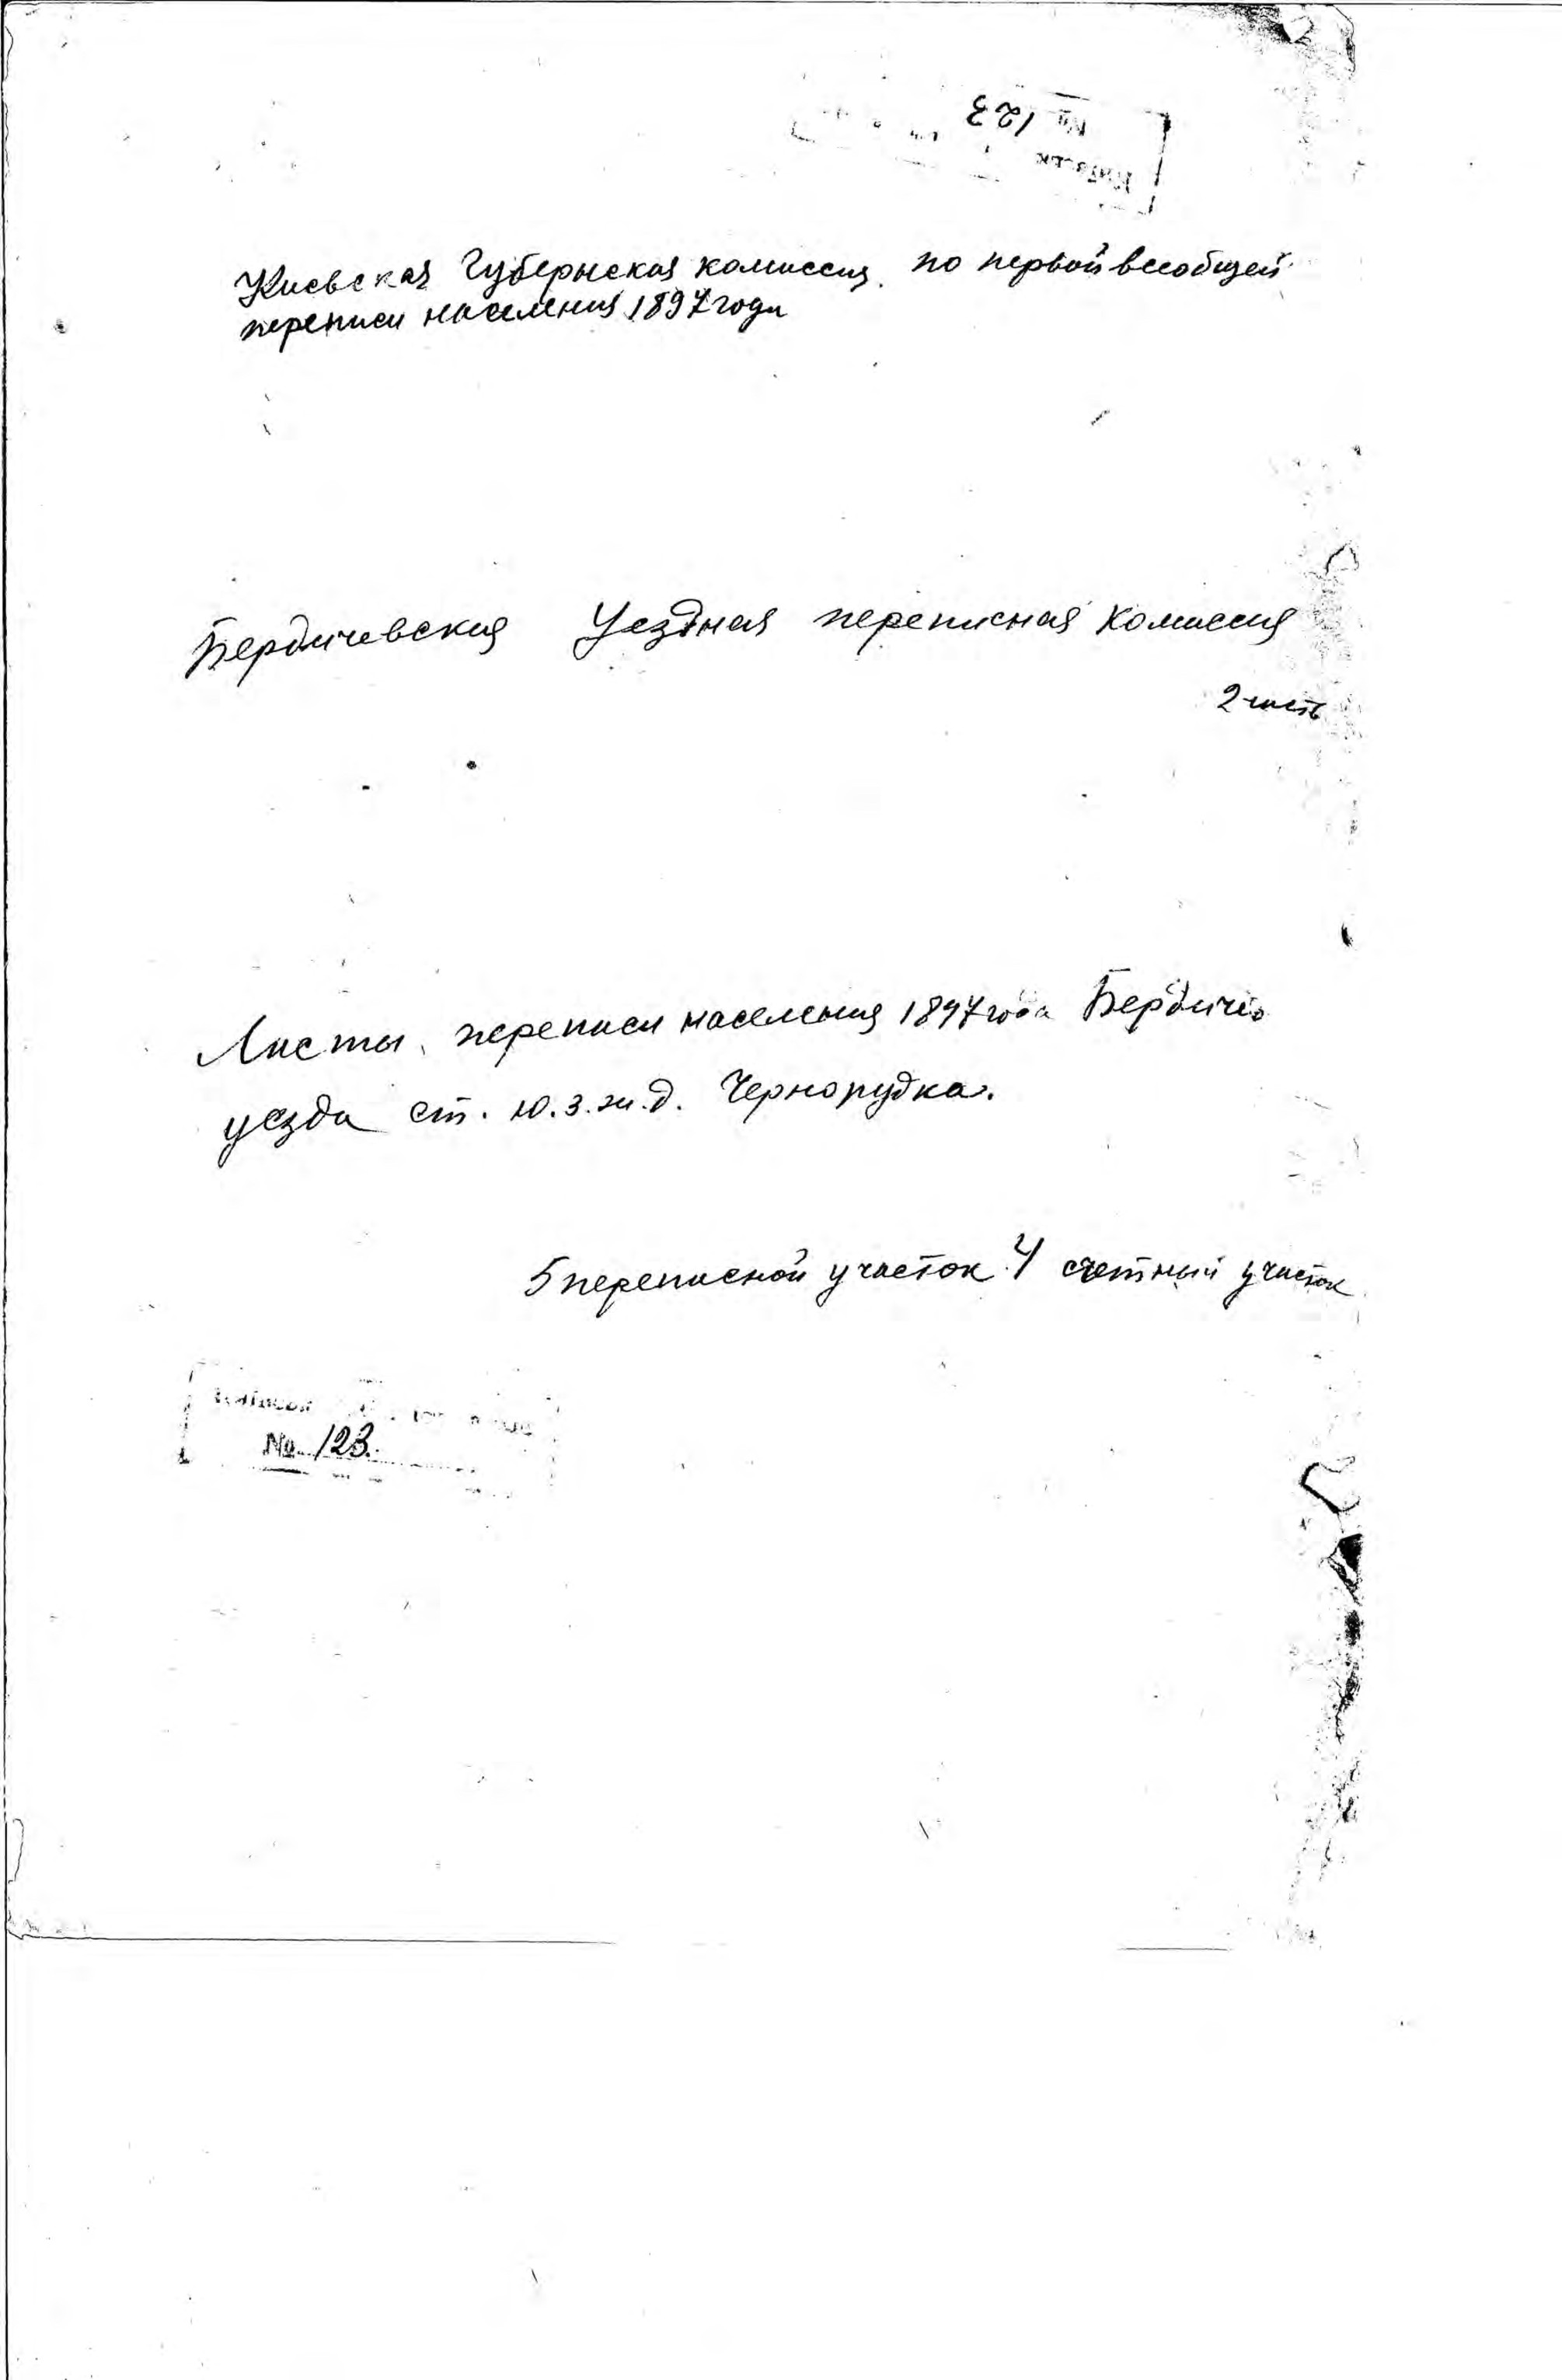 № 123
Киевская Губернская комиссия по первой всеобщей
переписи населения 1897 года
Бердичевская Уездная переписная комиссия
2 часть
Листы переписи населения 1897 года Бердичев
уезда ст. Ю.З.ж.д. Чернорудка.
5 переписной участок 4 счетный участок
№ 123.